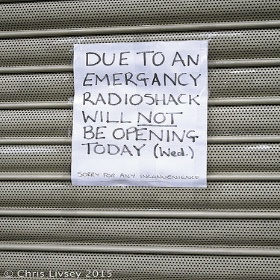 DUE TO AN
EMERGANCY
RADIOSHACK
WILL NOT
BE OPENING
TODAY (Wed.)
SORRY FOR ANY INCONVENIENCE
© Chris Livsey 2015